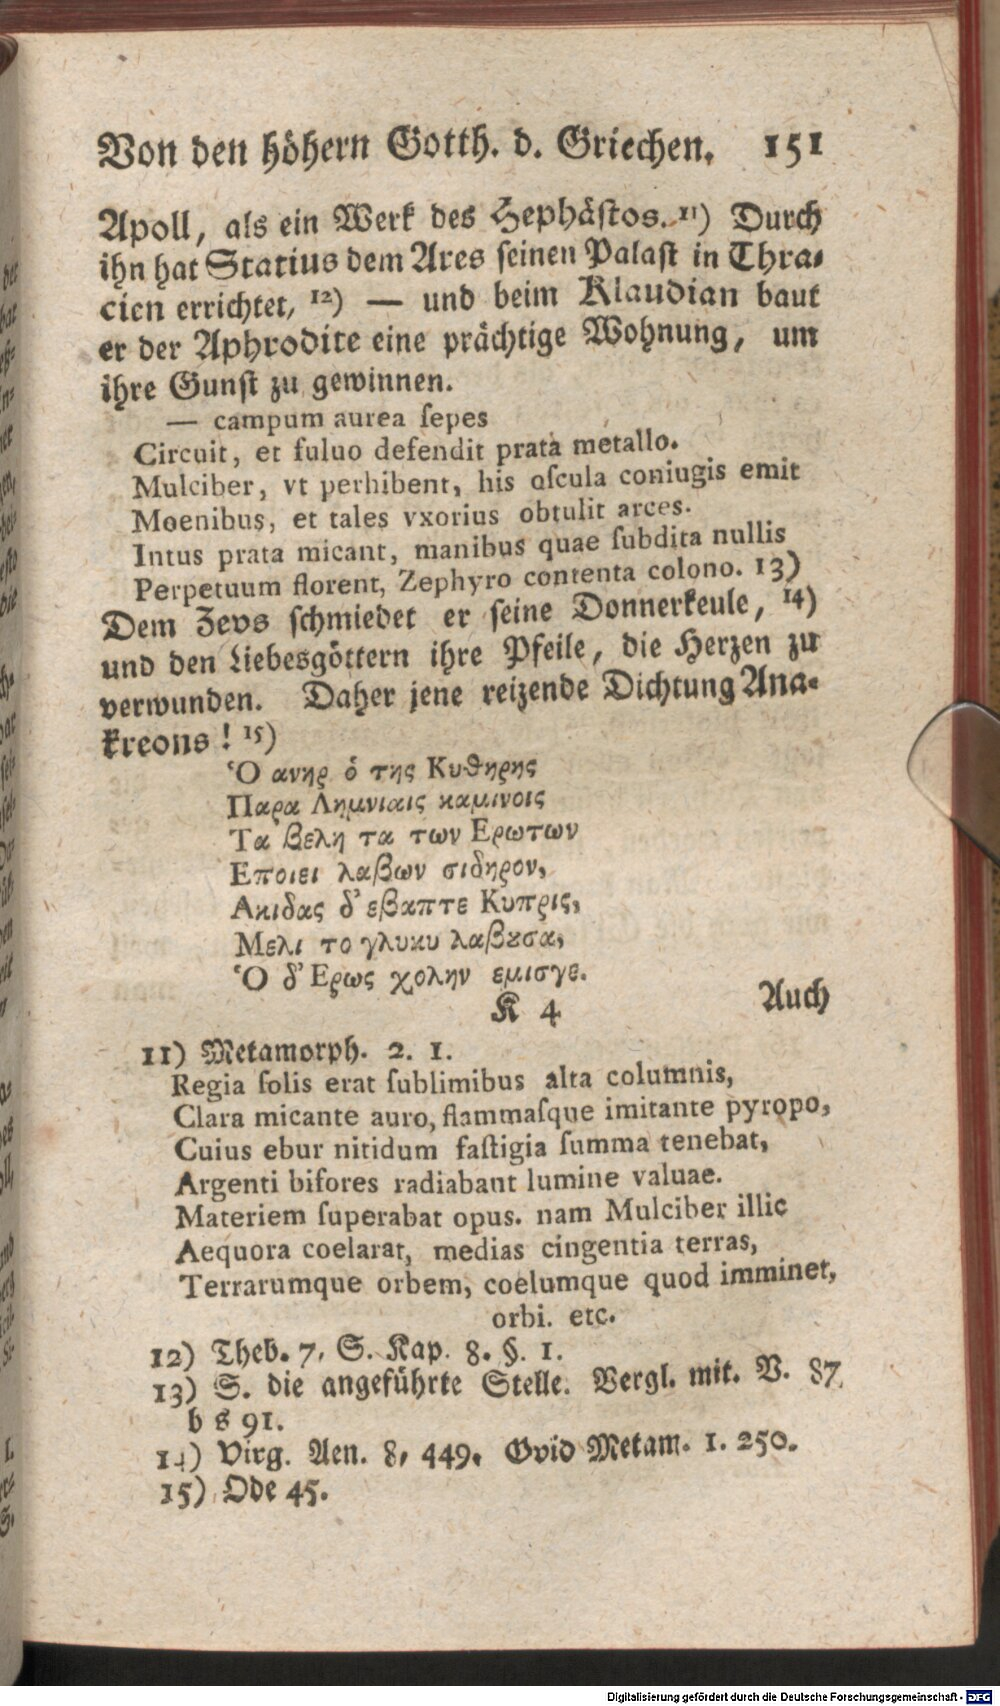 Von den höhern Gotth. d. Griechen. 151
Apoll, als ein Werk des Hephästos. 11) Durch
ihn hat Statius dem Ares seinen Palast in Thra-
cien errichtet, 12) — und beim Klaudian baut
er der Aphrodite eine prächtige Wohnung, um
ihre Gunst zu gewinnen.
— campum aurea ſepes
Circuit, et fuluo defendit prata metallo.
Mulciber, vt perhibent, his oſcula coniugis emit
Moenibus, et tales vxorius obtulit arces.
Intus prata micant, manibus quae ſubdita nullis
Perpetuum florent, Zephyro contenta colono. 13)
Dem Zevs schmiedet er seine Donnerkeule, 14)
und den Liebesgöttern ihre Pfeile, die Herzen zu
verwunden. Daher jene reizende Dichtung Ana-
kreons! 15)
Ὁ ανηρ ὁ της Κυθηρης
Παρα Λημνιαις καμινοις
Τα βελη τα των Ερωτων
Εποιει λαβων σιδηρον,
Ακιδας δ' εβαπτε Κυπρις,
Μελι το γλυκυ λαβȣσα,
Ὁ δ' Ερως χολην εμισγε.
K 4 Auch
11) Metamorph. 2. 1.
Regia ſolis erat ſublimibus alta columnis,
Clara micante auro, flammaſque imitante pyropo,
Cuius ebur nitidum faſtigia ſumma tenebat,
Argenti bifores radiabant lumine valuae.
Materiem ſuperabat opus. nam Mulciber illic
Aequora coelarat, medias cingentia terras,
Terrarumque orbem, coelumque quod imminet,
orbi. etc.
12) Theb. 7, S. Kap. 8. §. 1.
13) S. die angeführte Stelle. Vergl. mit. V. 87
b s 91.
14) Virg. Aen. 8, 449. Ovid Metam. 1. 250.
15) Ode 45.
Digitalisierung gefördert durch die Deutsche Forschungsgemeinschaft - DFG